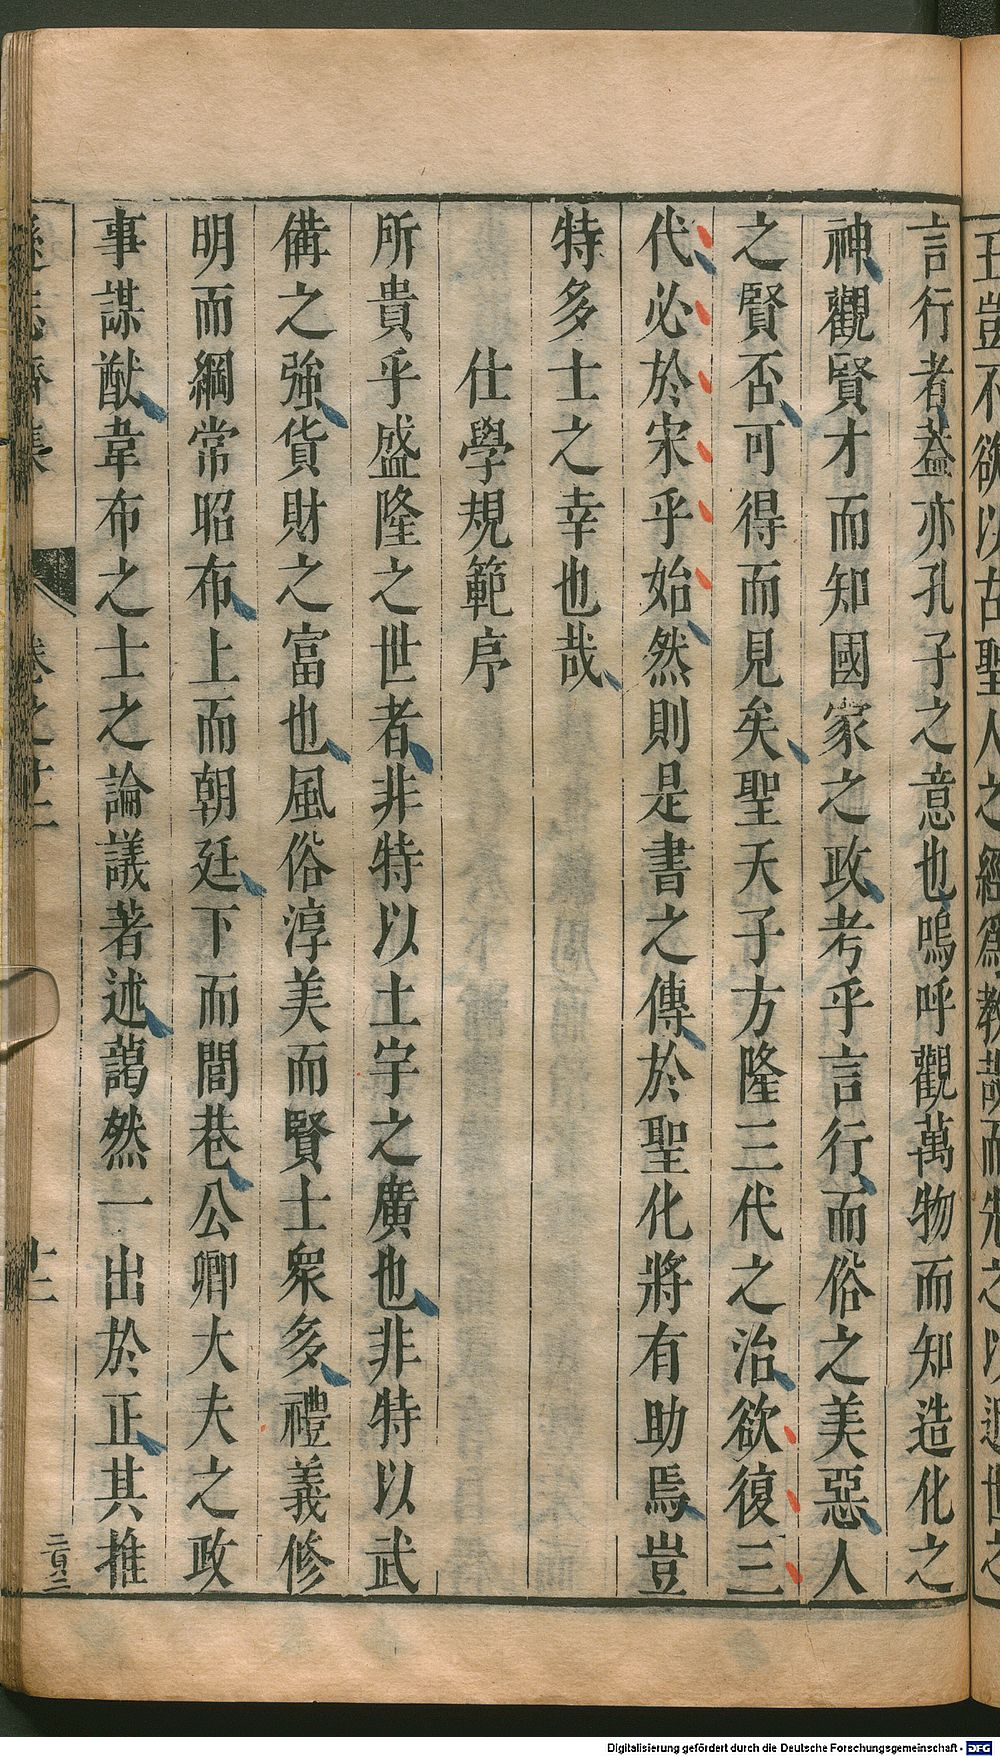 五豈不欲以古聖人之經爲教哉而先之以近世之
言行者葢亦孔子之意也嗚呼觀萬物而知造化之
神觀賢才而知國家之政考乎言行而俗之美惡人
之賢否可得而見矣聖天子方隆三代之治欲復三
代必於宋乎始然則是書之傳於聖化將有助焉豈
特多士之幸也哉
仕學規範序
所貴乎盛隆之世者非特以土宇之廣也非特以武
備之強貨財之富也風俗淳美而賢士衆多禮義修
明而綱常昭布上而朝廷下而閭巷公卿大夫之政
事謀猷韋布之士之論議著述藹然一出於正其推
遜志齋集
卷之十二
十二
二百八二
Digitalisierung gefördert durch die Deutsche Forschungsgemeinschaft - DFG